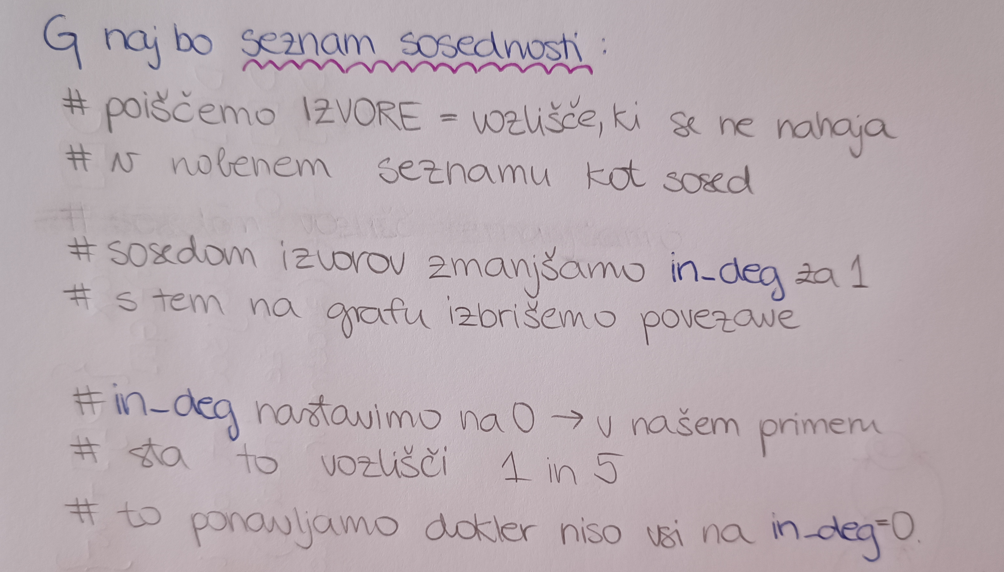 G naj bo seznam sosednosti:
# poiščemo IZVORE = vozlišče, ki se ne nahaja
# v nobenem seznamu kot sosed
# sosedom izvorov zmanjšamo in_deg za 1
# s tem na grafu izbrišemo povezave
# in_deg nastavimo na 0 → v našem primeru
# sta to vozlišči 1 in 5
# to ponavljamo dokler niso vsi na in_deg=0.